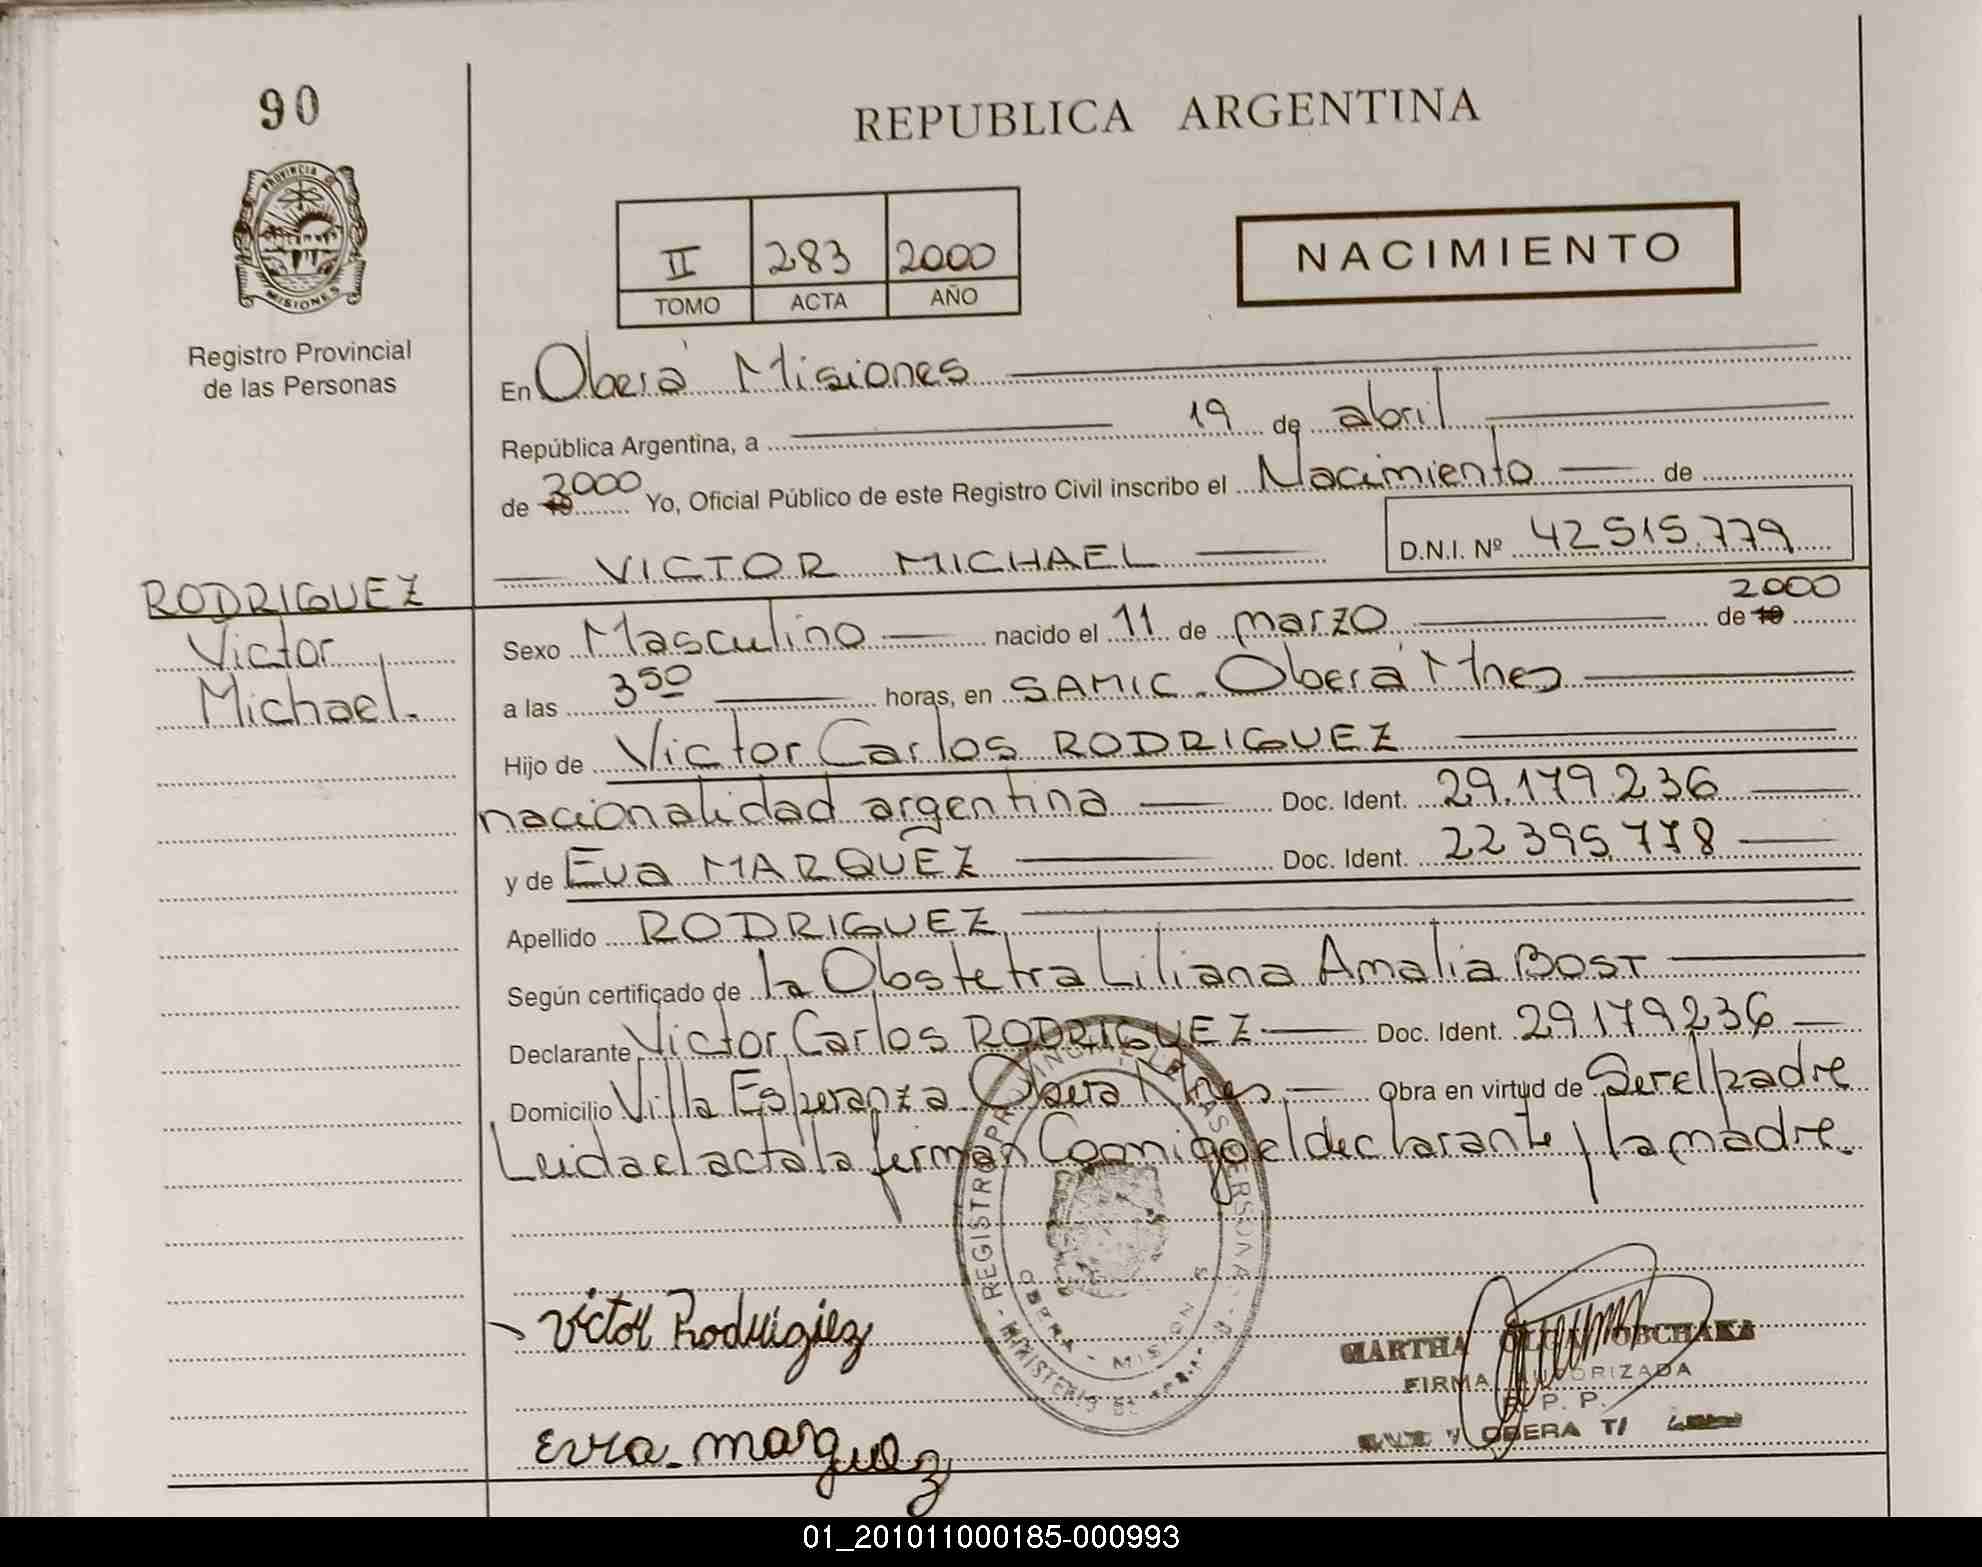 90
PROVINCIA
MISIONES
Registro Provincial
de las Personas
REPUBLICA ARGENTINA
II 283 2000
TOMO ACTA AÑO
NACIMIENTO
En Oberá Misiones
República Argentina, a 19 de abril
de 19 2000 Yo, Oficial Público de este Registro Civil inscribo el Nacimiento de
VICTOR MICHAEL D.N.I. Nº 42515.779
RODRIGUEZ
Victor
Michael.
Sexo Masculino nacido el 11 de marzo de 19 2000
a las 3 50 horas, en SAMIC. Oberá Mnes
Hijo de Victor Carlos RODRIGUEZ
nacionalidad argentina Doc. Ident. 29.179.236
y de Eva MARQUEZ Doc. Ident. 22.395.778
Apellido RODRIGUEZ
Según certificado de la Obstetra Liliana Amalia BOST
Declarante Victor Carlos RODRIGUEZ Doc. Ident. 29179236
Domicilio Villa Esperanza Oberá Mnes Obra en virtud de Ser el padre
Leida el acta la ferman Conmigo el declarante y la madre.
Victor Rodriguiez
Evva. marquez
MARTHA
FIRMA AUTORIZADA
R. P. P.
OBERA
REGISTRO PROVINCIAL DE LAS PERSONAS
MINISTERIO DE
OBERA - MISIONES
01_201011000185-000993